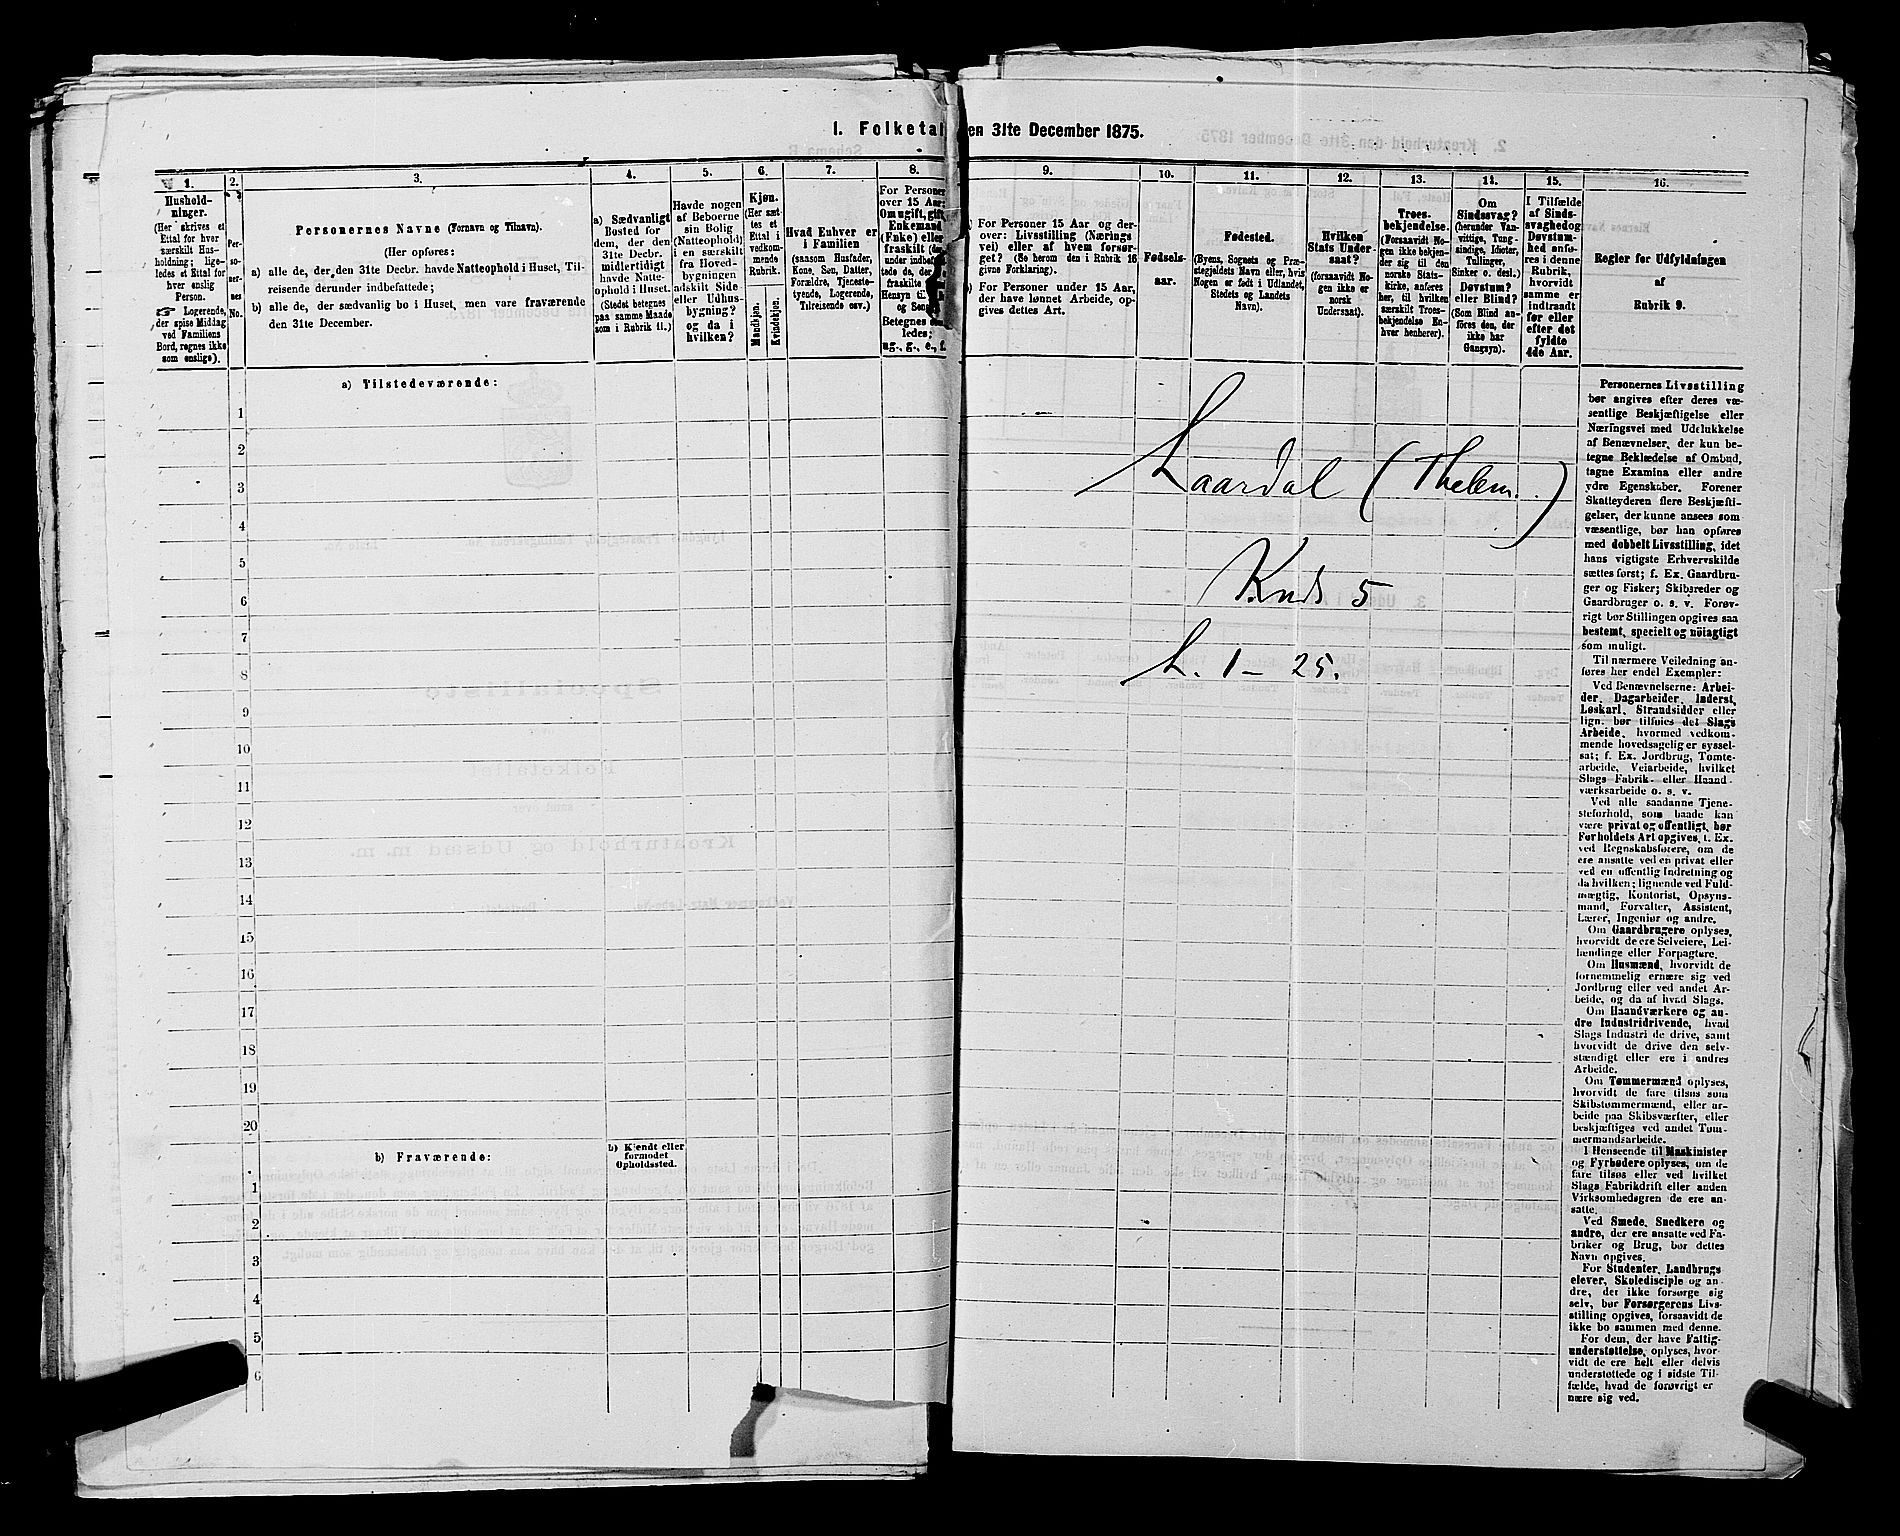 1. Folketal en 31te December 1875.
1.
Hushold-
ninger.
(Her skrives et
Ettal for hver
særskilt Hus-
holdning; lige-
ledes et Ettal for
hver enslig
Person.
☞ Logerende,
der spise Middag
ved Familiens
Bord, regnes ikke
som enslige).
2.
Per-
so-
ner-
nes
No.
3.
Personernes Navne (Fornavn og Tilnavn).
(Her opføres:
a) alle de, der den 31te Decbr. havde Natteophold i Huset, Til-
reisende derunder indbefattede;
b) alle de, der sædvanlig bo i Huset, men vare fraværende
den 31te December.
4.
a) Sædvanligt
Bosted for
dem, der den
31te Decbr.
midlertidigt
havde Natte-
ophold i Huset.
(Stedet betegnes
paa samme Maade
som i Rubrik 11.)
5.
Havde nogen
af Beboerne
sin Bolig
(Natteophold)
i en særskilt
fra Hoved-
bygningen
adskilt Side
eller Udhus-
bygning?
og da i
hvilken?
6.
Kjøn.
(Her sæt-
tes et
Ettal i
vedkom-
mende
Rubrik.
Mandkjøn.
Kvindekjøn.
7.
Hvad Enhver er
i Familien
(saasom Husfader,
Kone, Søn, Datter,
Forældre, Tjeneste-
tyende, Logerende,
Tilreisende osv.)
8.
For Personer
over 15 Aar:
Om ugift, gift,
Enkemand
(Enke) eller
fraskilt
under indbef
tede de,
fraskilte
Hensyn til
og Sen
Betegnes
ledes:
ug., g., e., f.
9.
For Personer 15 Aar og der-
over: Livsstilling (Nærings
vei) eller af hvem forsør-
get? (Se herom den i Rubrik 16
givne Forklaring).
For Personer under 15 Aar,
der have lønnet Arbeide, op-
gives dettes Art.
10.
Fødsels-
aar.
11.
Fødested.
(Byens, Sognets og Præ-
stegjeldets Navn eller, hvis
Nogen er født i Udlandet,
Stedets og Landets
Navn).
12.
Hvilken
Stats Under-
saat?
(forsaavidt No-
gen ikke er
norsk
Undersaat).
13.
Troes-
bekjendelse.
(Forsaavidt No-
gen ikke bekjen-
der sig til den
norske Stats-
kirke, anføres
her, til hvilken
særskilt Troes-
bekjendelse En-
hver henhører).
14.
Om
Sindssvag?
(herunder Van-
vittige, Tung-
sindige, Idioter,
Tullinger,
Sinker o. desl.)
Døvstum?
eller Blind?
(Som Blind an-
føres den, der
ikke har
Gangsyn).
15.
I Tilfælde
af Sinds-
svaghed og
Døvstum-
hed anfø-
res i denne
Rubrik,
hvorvidt
samme er
indtraadt
før eller
efter det
fyldte
4de Aar.
16.
Regler for Udfyldningen
af
Rubrik 9.
a) Tilstedeværende:
1
2
3
4
5
6
7
8
9
10
11
12
13
14
15
16
17
18
19
20
b) Fraværende:
b) Kjendt eller
formodet
Opholdssted.
1
2
3
4
5
6
Laardal (Thelem.)
Knds 5
L. 1 - 25.
Personernes Livsstilling
bør angives efter deres væ-
sentlige Beskjæftigelse eller
Næringsvei med Udelukkelse
af Benævnelser, der kun be-
tegne Beklædelse af Ombud,
tagne Examina eller andre
ydre Egenskaber. Forener
Skatteyderen flere Beskjæfti-
gelser, der kunne ansees som
væsentlige, bør han opføres
med dobbelt Livsstilling, idet
hans vigtigste Erhvervskilde
sættes først; f. Ex. Gaardbru-
ger og Fisker; Skibsreder og
Gaardbruger o. s. v. Forøv-
rigt bør Stillingen opgives saa
bestemt, specielt og nöiagtigt
som muligt.
Til nærmere Veiledning an-
føres her endel Exempler:
Ved Benævnelserne: Arbei-
der, Dagarbeider, Inderst,
Løskarl, Strandsidder eller
lign. bør tilføies det Slags
Arbeide, hvormed vedkom-
mende hovedsagelig er syssel-
sat; f. Ex. Jordbrug, Tomte-
arbeide, Veiarbeide, hvilket
Slags Fabrik- eller Haand-
værksarbeide o. s. v.
Ved alle saadanne Tjene-
steforhold, som baade kan
være privat og offentligt, bør
Forholdets Art opgives, f. Ex.
ved Regnskabsførere, om de
ere ansatte ved en privat eller
ved en offentlig Indretning og
da hvilken; lignende ved Fuld-
mægtig, Kontorist, Opsyns-
mand, Forvalter, Assistent,
Lærer, Ingeniør og andre.
Om Gaardbrugere oplyses,
hvorvidt de ere Selveiere, Lei-
lændinge eller Forpagtere.
Om Husmænd, hvorvidt de
fornemmelig ernære sig ved
Jordbrug eller ved andet Ar-
beide, og da af hvad Slags.
Om Haandværkere og an-
dre Industridrivende, hvad
Slags Industri de drive, samt
hvorvidt de drive den selv-
stændigt eller ere i andres
Arbeide.
Om Tømmermænd oplyses,
hvorvidt de fare tilsøs som
Skibstømmermænd, eller ar-
beide paa Skibsværfter, eller
beskjæftiges ved andet Tøm-
mermandsarbeide.
I Henseende til Maskinister
og Fyrbødere oplyses, om de
fare tilsøs eller ved hvilket
Slags Fabrikdrift eller anden
Virksomhedsgren de ere an-
satte.
Ved Smede, Snedkere og
andre, der ere ansatte ved Fa-
briker og Brug, bør dettes
Navn opgives.
For Studenter, Landbrugs
elever, Skoledisciple og an-
dre, der ikke forsørge sig
selv, bør Forsørgerens Livs-
stilling opgives, forsaavidt de
ikke bo sammen med denne.
For dem, der have Fattig-
understøttelse, oplyses, hvor-
vidt de ere helt eller delvis
understøttede og i sidste Til-
fælde, hvad de forøvrigt er
nære sig ved.